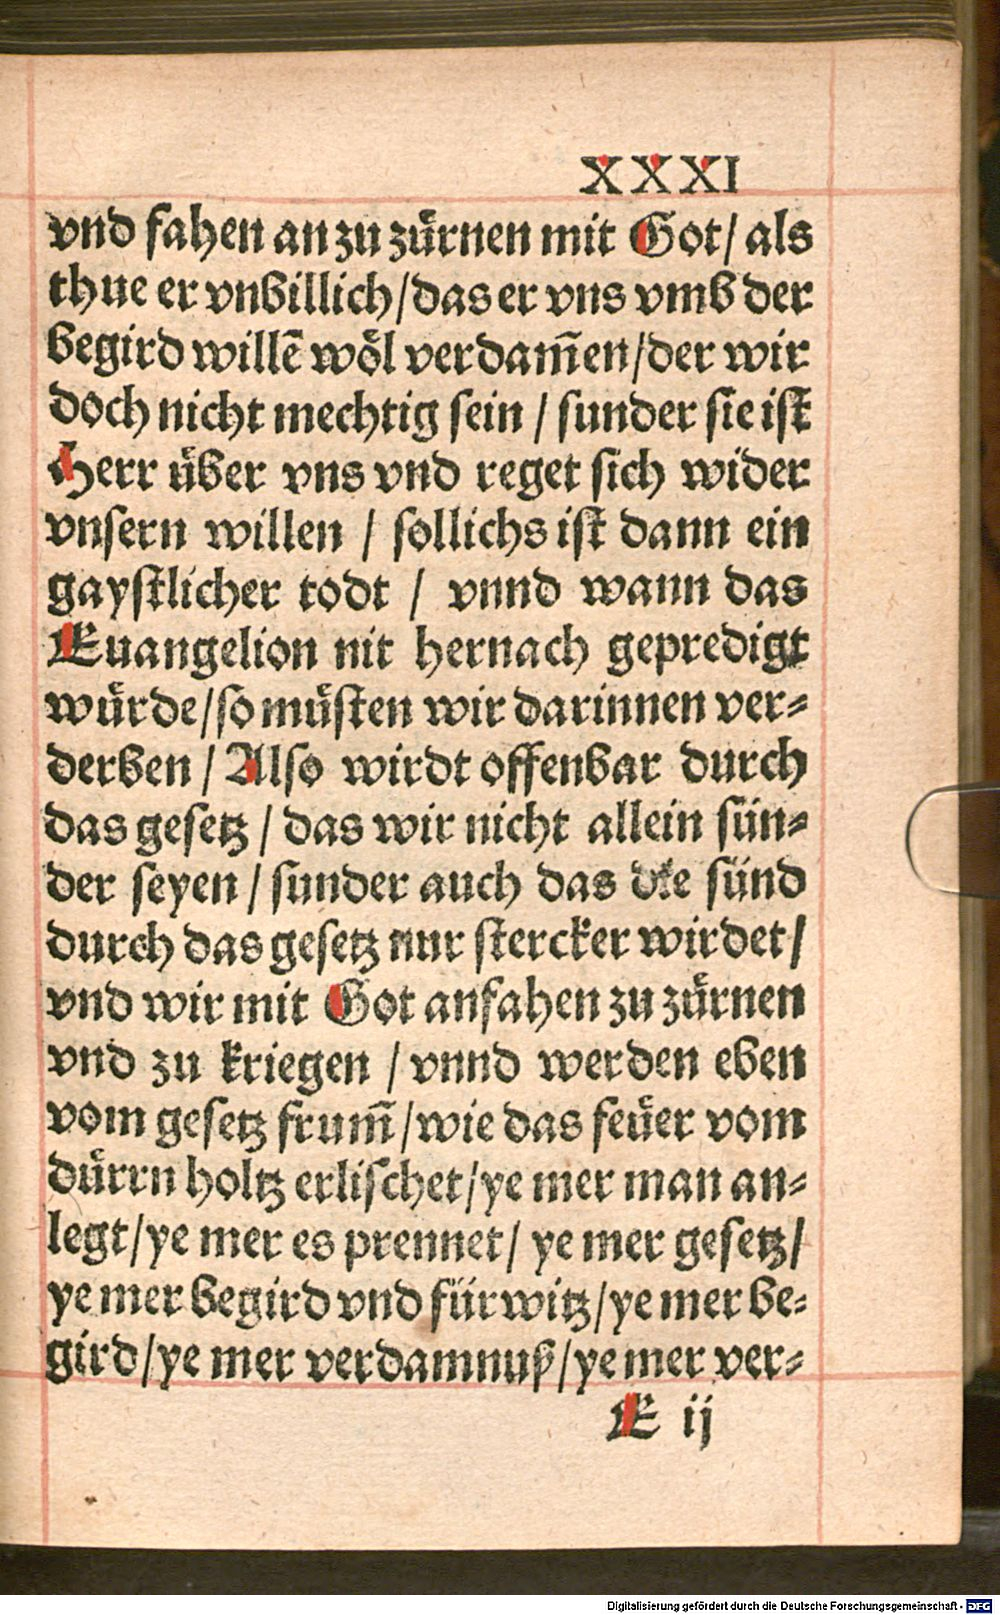 XXXI
vnd fahen an zu zuͤrnen mit Got/ als
thue er vnbillich/das er vns vmb der
begird willē woͤl verdam̄en/der wir
doch nicht mechtig sein / sunder sie ist
Herr uͤber vns vnd reget sich wider
vnsern willen / sollichs ist dann ein
gaystlicher todt / vnnd wann das
Euangelion nit hernach gepredigt
wuͤrde/so muͤsten wir darinnen ver⸗
derben / Also wirdt offenbar durch
das gesetz / das wir nicht allein sün⸗
der seyen / sunder auch das die sünd
durch das gesetz nur stercker wirdet/
vnd wir mit Got anfahen zu zuͤrnen
vnd zu kriegen / vnnd werden eben
vom gesetz frum̄/wie das feuͤer vom
duͤrrn holtz erlischet/ye mer man an⸗
legt/ye mer es prennet/ ye mer gesetz/
ye mer begird vnd fürwitz/ye mer be⸗
gird/ye mer verdamnuß/ye mer ver⸗
E ij
Digitalisierung gefördert durch die Deutsche Forschungsgemeinschaft - DFG